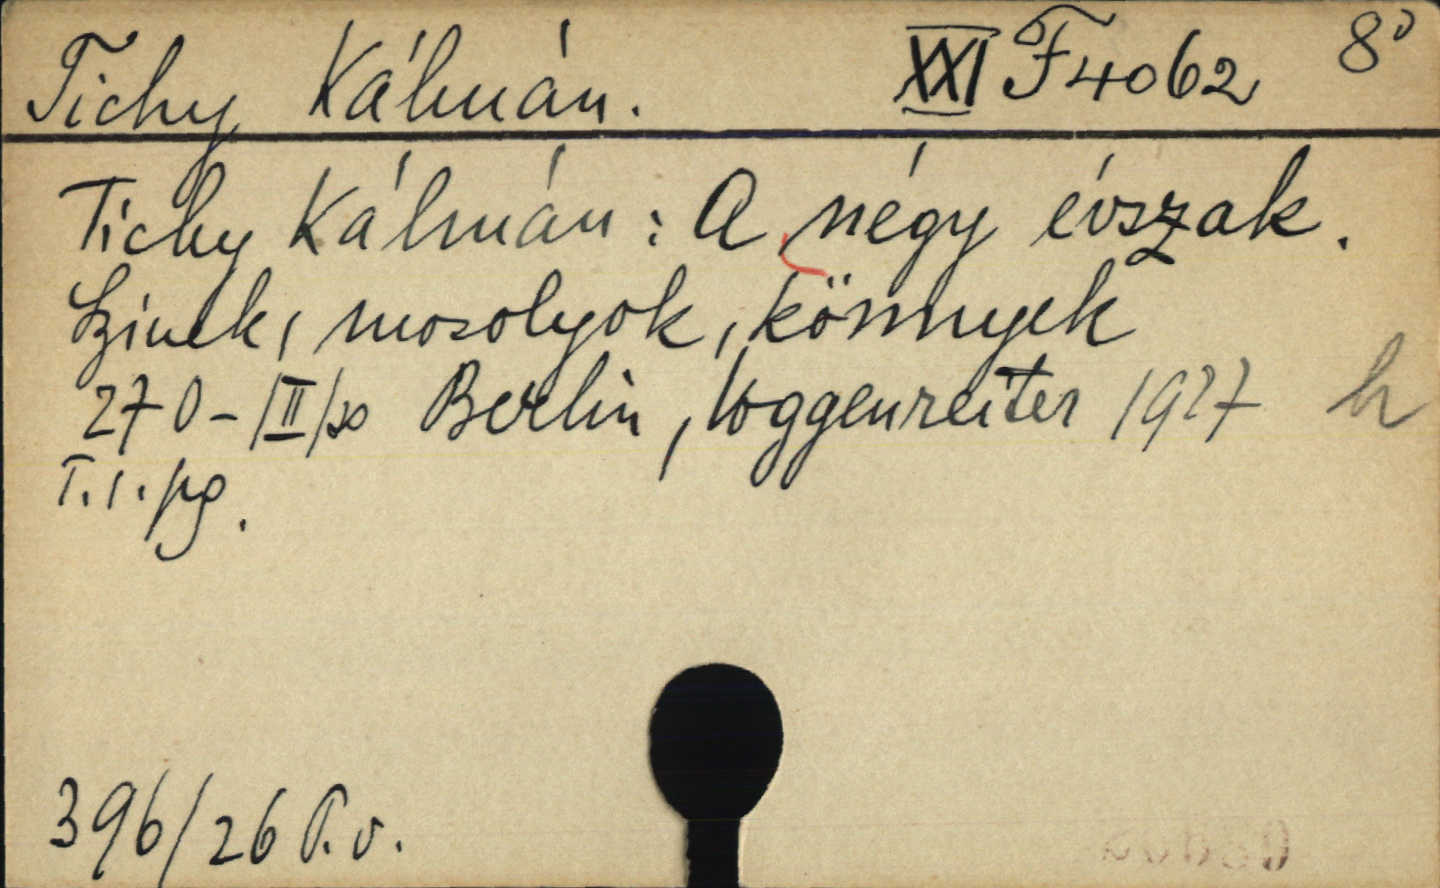 Tichy Kálmán. XXI F4062 8°
Tichy Kálmán: A négy évszak.
Szinek, mosolyok, könnyek
270- |II| Berlin, Voggenreiter 1927 h
T. 1. pg.
396/26 P. v.